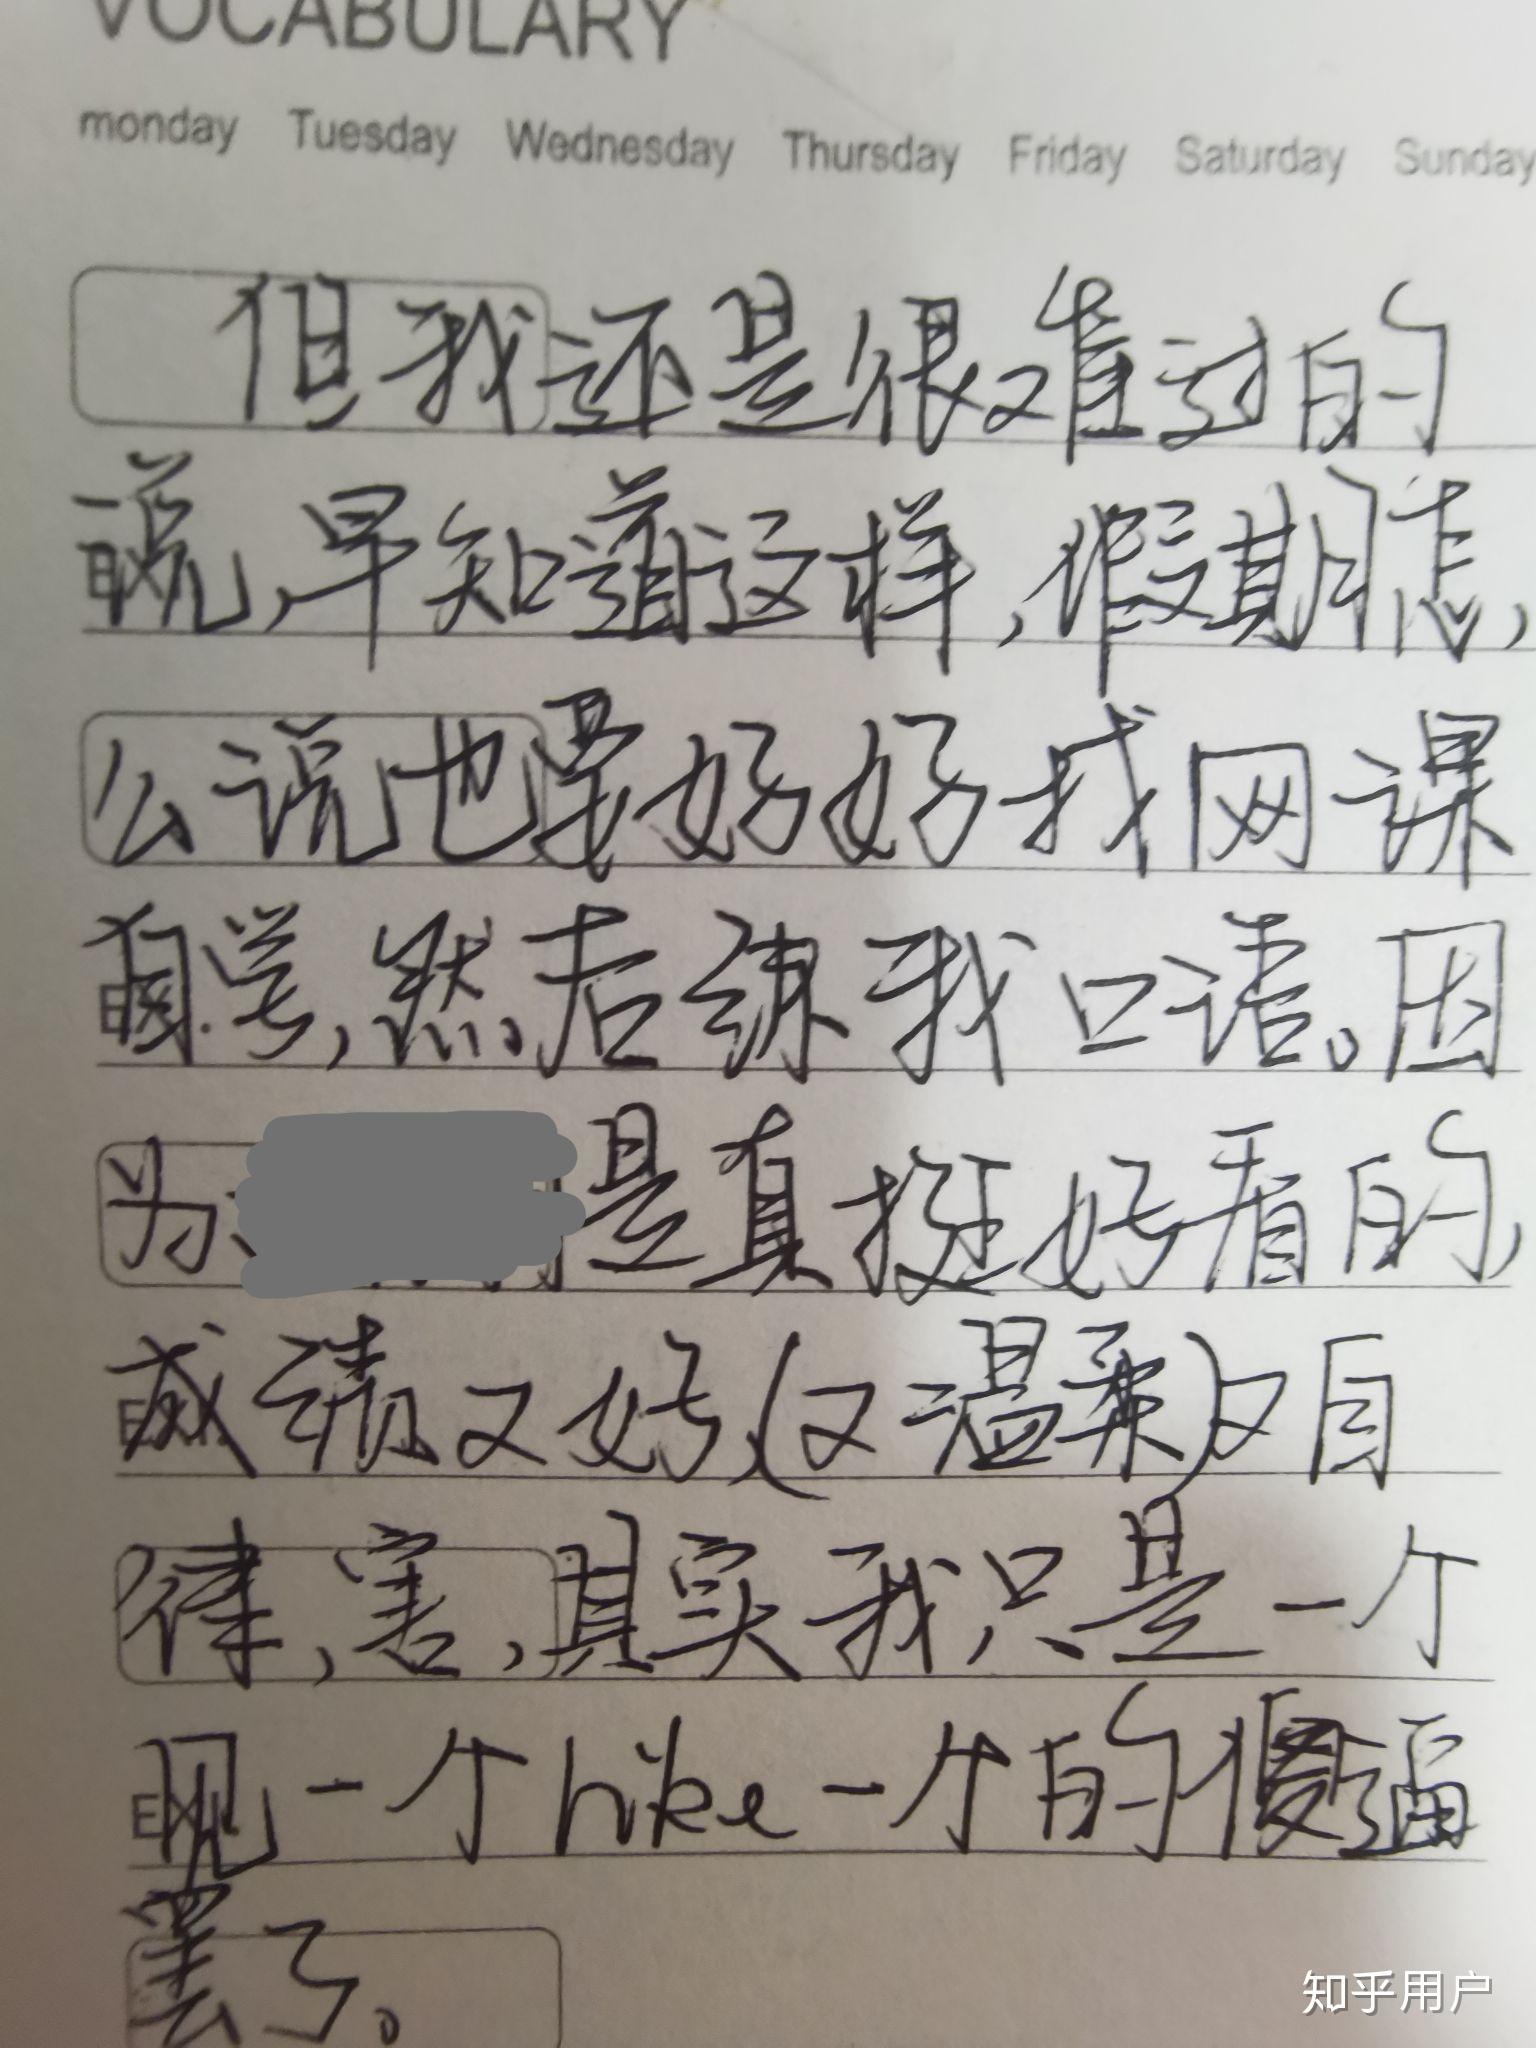 VOCABULARY
monday Tuesday Wednesday Thursday Friday Saturday Sunday
但我还是很难过的
说,早知道这样,假期怎,
么说也要好好找网课
自学,然后练我口语。因
为 是真挺好看的,
成绩又好,(又温柔)又自
律,害,其实我只是一个
见一个like一个的傻逼
罢了。
知乎用户